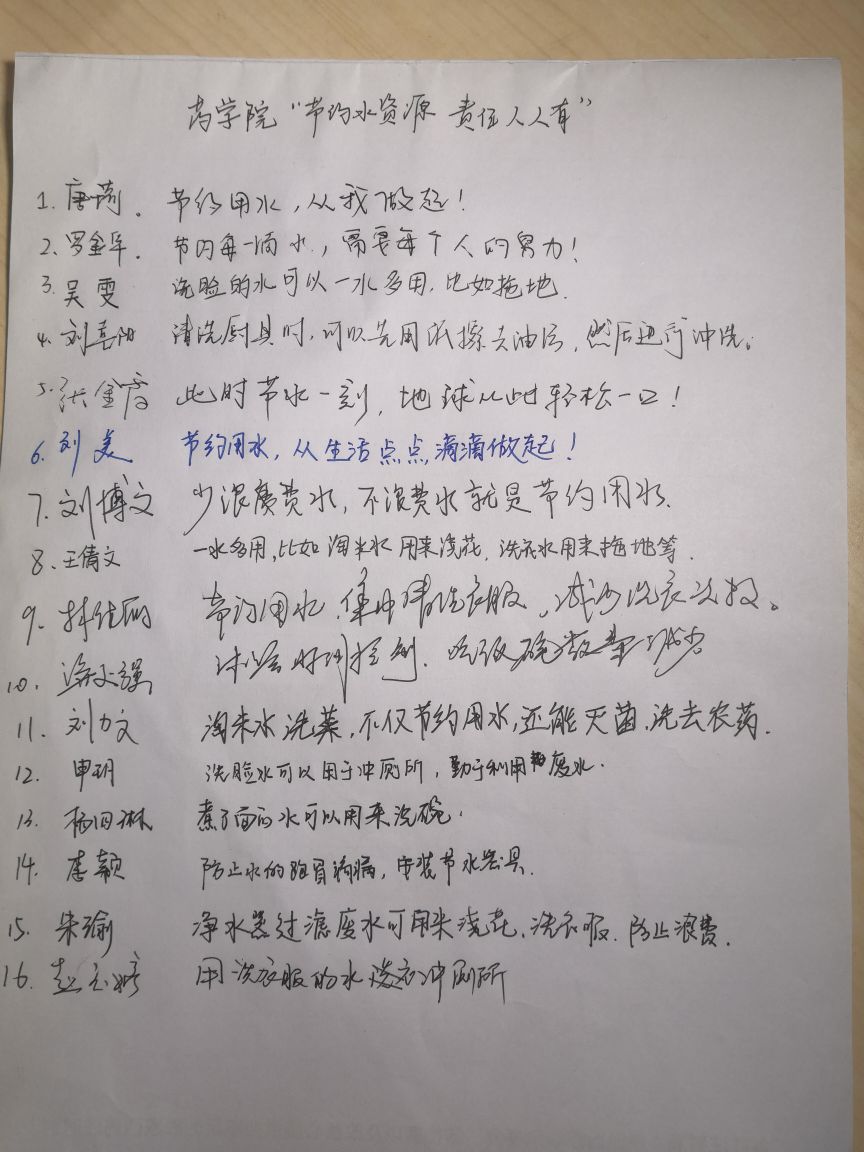 药学院“节约水资源 责任人人有”
1. 唐蒴. 节约用水，从我做起！
2. 罗金华. 节约每一滴水，需要每个人的努力！
3. 吴雯 洗脸的水可以一水多用，比如拖地.
4. 刘喜阳 清洗厨具时，可以先用纸擦去油污，然后进行冲洗。
5. 张金 此时节水一刻，地球从此轻松一口！
6. 刘美 节约用水，从生活点点滴滴做起！
7. 刘博文 少浪费水，不浪费水就是节约用水.
8. 王倩文 一水多用，比如淘米水用来浇花，洗衣水用来拖地等.
9. 林佳 节约用水，集中清洗衣服，减少洗衣次数。
10. 沐浴时间控制，吃饭碗数量减少
11. 刘力文 淘米水洗菜，不仅节约用水，还能灭菌，洗去农药.
12. 申玥 洗脸水可以用于冲厕所，勤于利用废水.
13. 杨 琳 煮了面的水可以用来洗碗.
14. 李颖 防止水的跑冒滴漏，安装节水器具.
15. 朱瑜 净水器过滤废水可用来浇花，洗衣服，防止浪费.
16. 赵 婷 用洗衣服的水 冲厕所